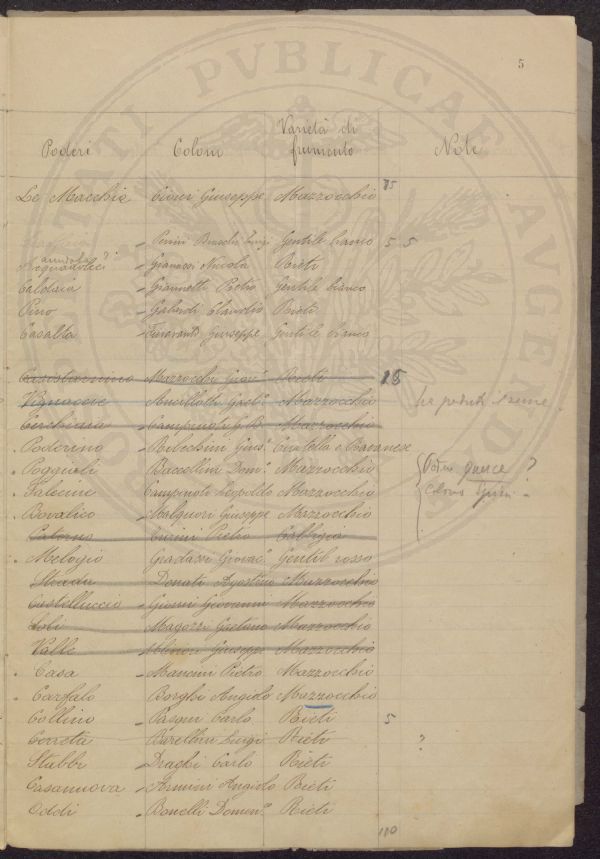 5
Poderi Coloni Varietà di frumento Note
Le Macchie Cioeci Giuseppe Mazzocchio 15
Luigi Gentile bianco 5 5
Giannozzi Nicola Rieti
Caldaia Giannetti Pietro Gentile bianco
Pino Galardi Claudio Rieti
Casalta Giuseppe Gentile bianco
Mazzocchi Giov.º Rieti 15
Vignaccie Ancillotti Mazzocchio
Cerchiaia Campinoti G. B. Mazzocchio
Poderino Belocchini Gius.e Civitella e Bavanese
Poggioli Baccellini Dom.º Mazzocchio ?
Falcine Campinoti Leopoldo Mazzocchio
Bovalico Malquori Giuseppe Mazzocchio
Caterno Cinini Pietro Calbigia
Melogio Gradassi Giovac.º Gentil rosso
Strada Donati Agostino Mazzocchio
Castelluccio Gianni Giovanni Mazzocchio
Soli Magozzi Gaetano Mazzocchio
Valle Giuseppe Mazzocchio
Casa Mancini Pietro Mazzocchio
Carfalo Borghi Angiolo Mazzocchio
Collino Pasqui Carlo Rieti 5
Correta Borellini Luigi Rieti ?
Stabbi Draghi Carlo Rieti
Casanuova Armini Angiolo Rieti
Oddi Bonelli Domen.º Rieti
110